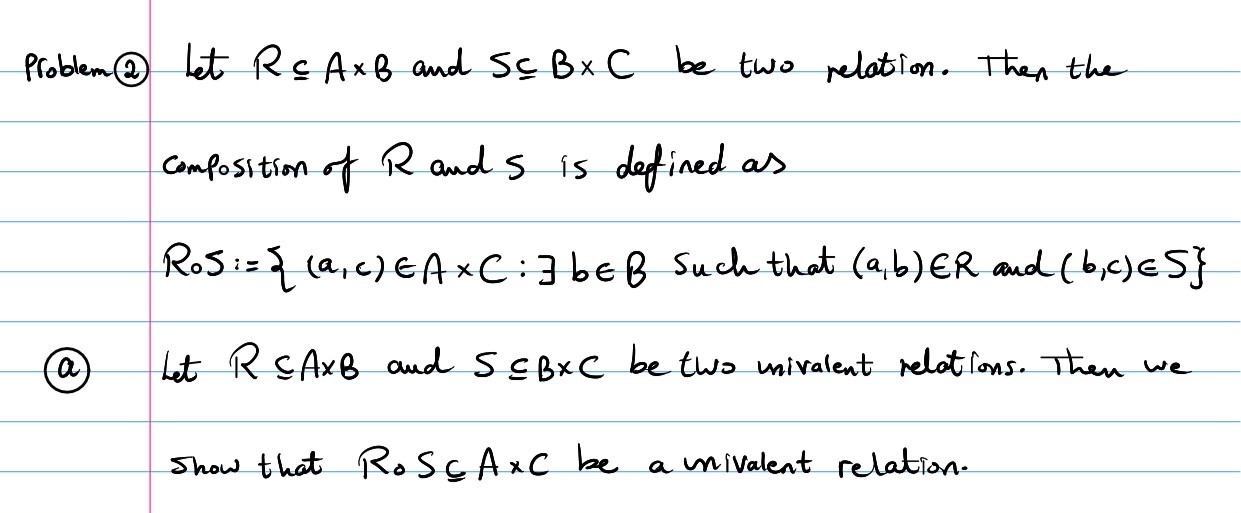 Problem ② Let R ⊆ A×B and S ⊆ B×C be two relation. Then the
composition of R and S is defined as
R∘S := { (a,c) ∈ A×C : ∃ b ∈ B such that (a,b) ∈ R and (b,c) ∈ S}
ⓐ Let R ⊆ A×B and S ⊆ B×C be two univalent relations. Then we
show that R∘S ⊆ A×C be a univalent relation.